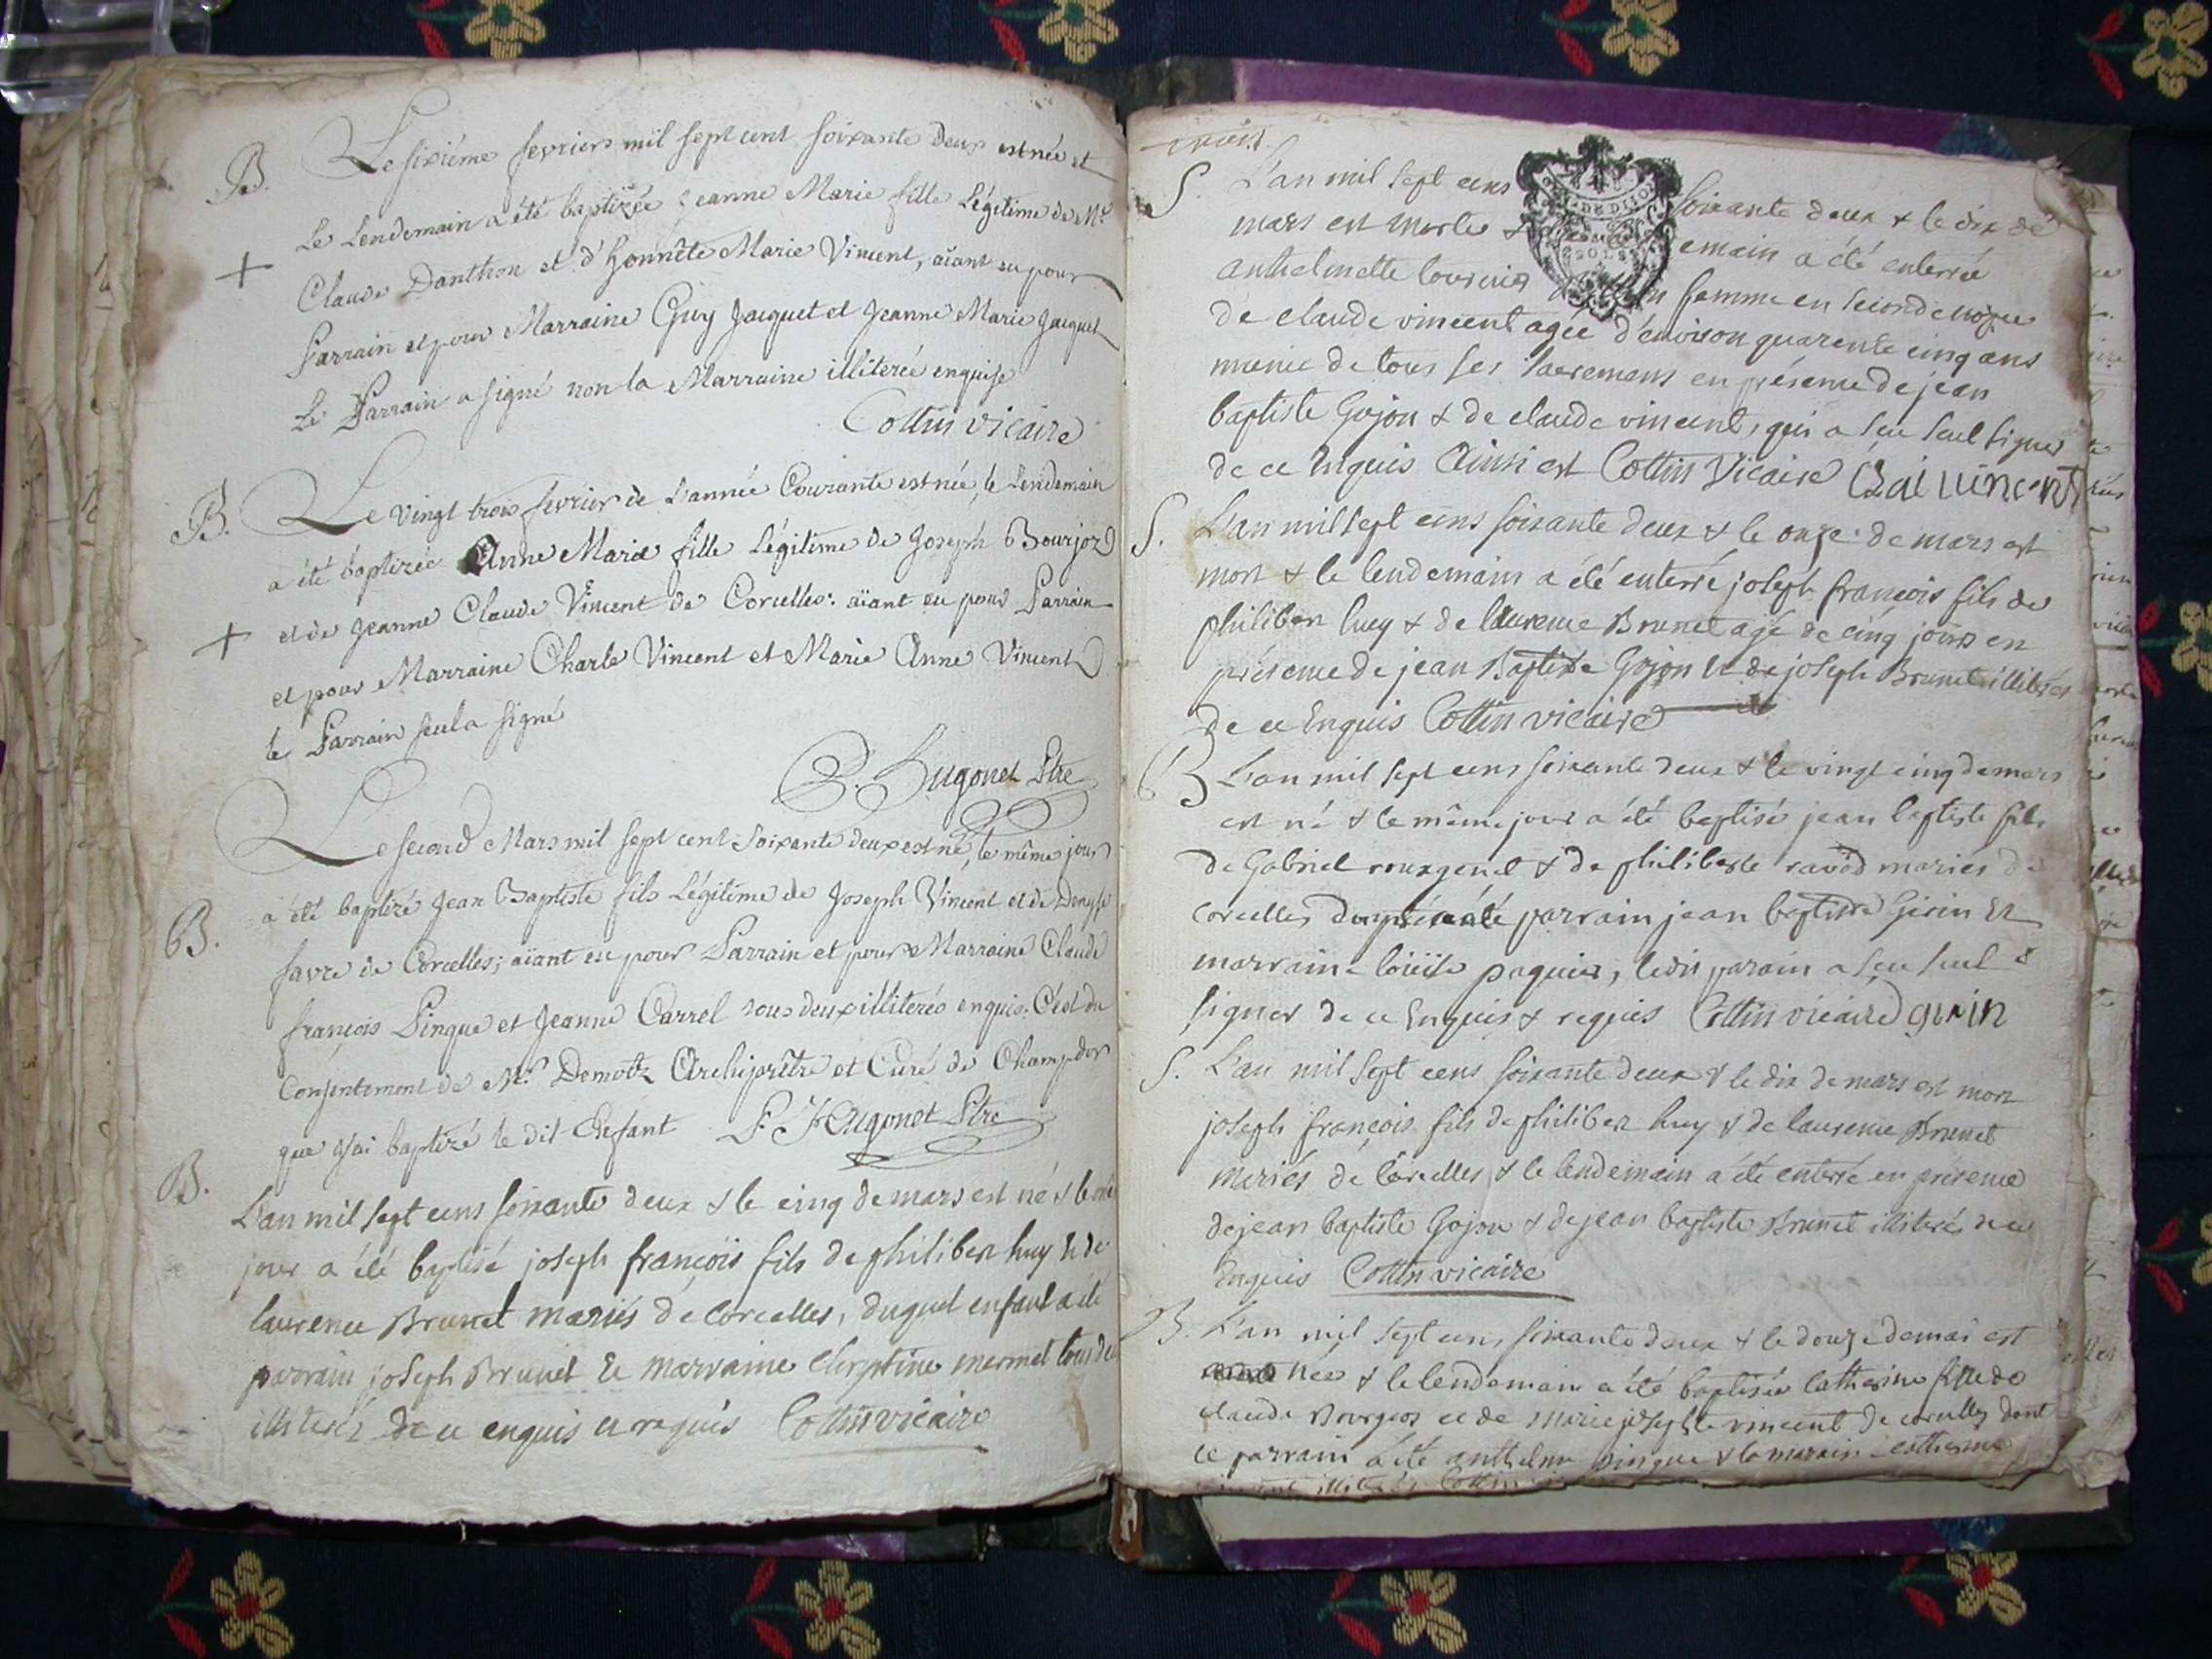 B. Le sixiéme fevrier mil sept cent soixante deux est née et
le Lendemain a été baptizée Jeanne Marie fille Légitime de Mr
+ Claude Danthon et d'honnête Marie Vincent, aïant eu pour
Parrain et pour Marraine Guy Jacquet et Jeanne Marie Jacquet
le Parrain a signé non la Marraine illiterée enquise
Cottin vicaire
B. Le vingt trois fevrier de L'année Courante est née, le Lendemain
a été baptizée Anne Marie fille Légitime de Joseph Bourjoz
+ et de Jeanne Claude Vincent de Corcelles: aïant eu pour Parrain
et pour Marraine Charle Vincent et Marie Anne Vincent
le Parrain seul a signé
Hugonet Ptre
Le second Mars mil sept cent soixante deux est né, le même jour
B. a été baptizé Jean Baptiste fils Légitime de Joseph Vincent et de Denyse
favre de Corcelles; aïant eu pour Parrain et pour Marraine Claude
françois Pingue et Jeanne Carrel tous deux illiterés enquis. C'est du
Consentement de Mr. Demotz Archiprêtre et Curé de Champdor
que j'ai baptizé le dit Enfant Hugonet Ptre
B. L'an mil sept cens soixante deux & le cinq de mars est né & le mê
jour a été baptisé joseph françois fils de philiber huy & de
laurence Brunet mariés de Corcelles, duquel enfant a été
parrain joseph Brunet & marraine mermet tous de
illiterés de ce enquis et requis Cottin vicaire
S. L'an mil sept cens soixante deux & le dix de
mars est morte & emain a été enterrée
anthelmette femme en seconde nopce
de claude vincent agée d'environ quarente cinq ans
munie de tous ses sacremens en présence de jean
baptiste Gojon & de claude vincent, qui a seu seul signer
de ce Enquis Ainsi est Cottin Vicaire
S. L'an mil sept cens soixante deux & le onze de mars est
mort & le lendemain a été enterré joseph françois fils de
philiber huy & de laurence Brunet agé de cinq jours en
présence de jean Baptiste Gojon & de joseph Brunet illiterés
de ce Enquis Cottin vicaire
B L'an mil sept cens soixante deux & le vingt cinq de mars
est né & le même jour a été baptisé jean baptiste fils
de Gabriel & de philiberte mariés de
corcelles parrain jean baptiste Girin &
marraine loüise paquier, ledit parain a seu seul
signer de ce Enquis & requis Cottin vicaire girin
S. L'an mil sept cens soixante deux & le dix de mars est mort
joseph françois fils de philiber huy & de laurence Brunet
mariés de Corcelles & le lendemain a été enterré en présence
de jean baptiste Gojon & de jean baptiste Brunet illiterés de ce
Enquis Cottin vicaire
B. L'an mil sept cens soixante deux & le douze de mai est
née & le lendemain a été baptisée Catherine fille de
claude Bourgeos et de marie josephte vincent de corcelles dont
le parrain a été anthelme pingue & la marain catherine
illiterés Cottin